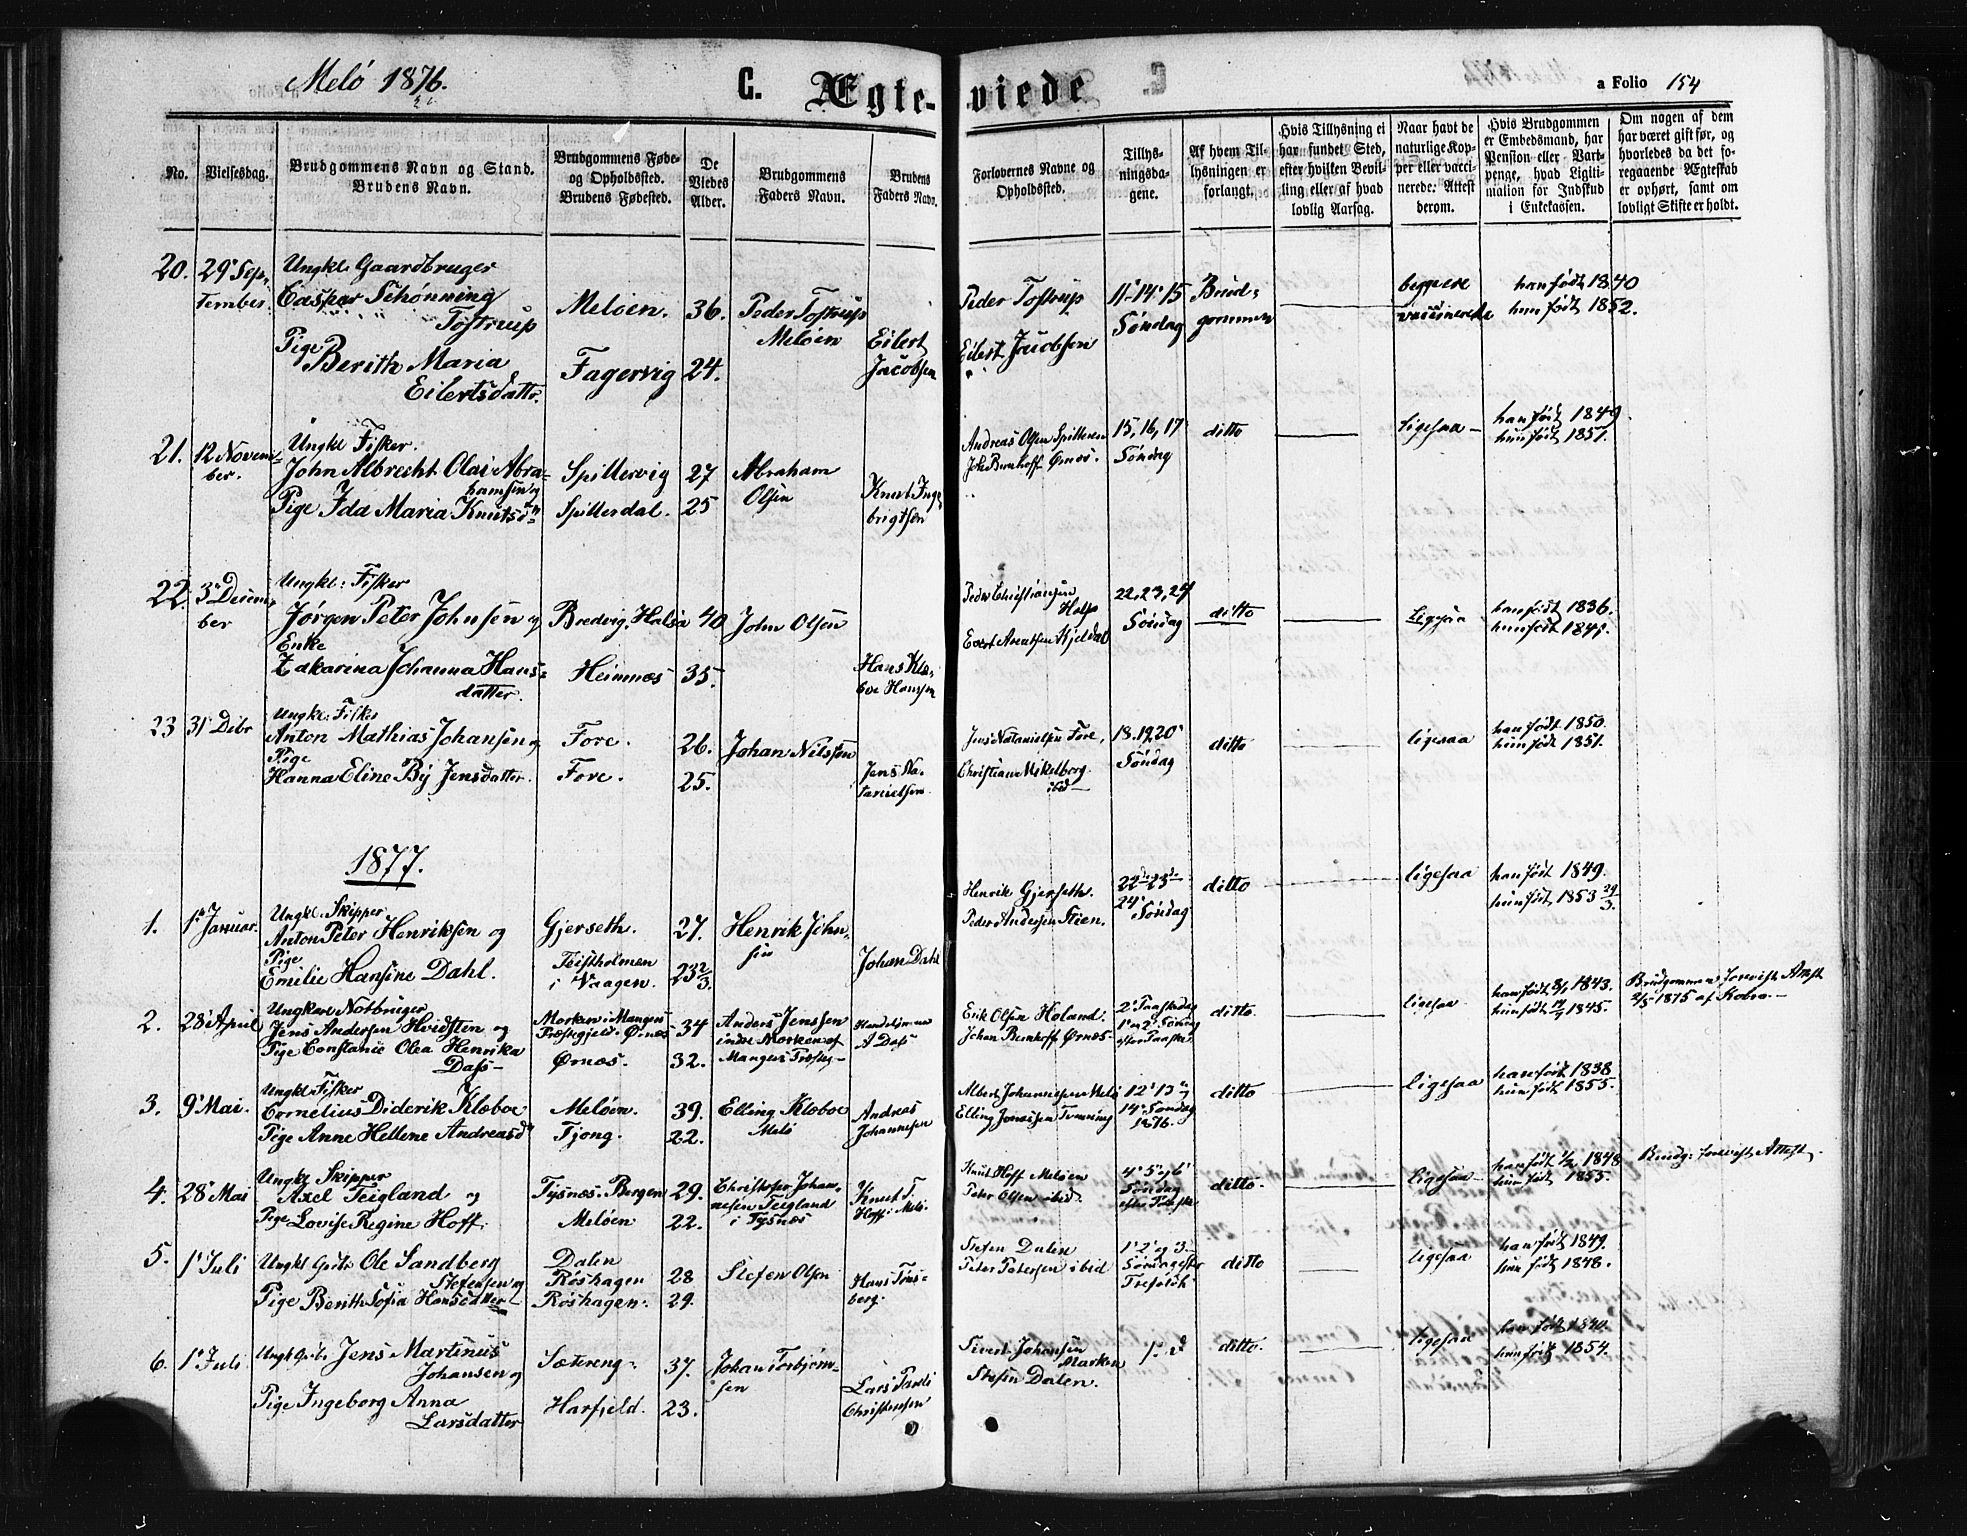 Melö 1876.
C. Ægte-
viede
a Folio 154
No.
Vielsesdag.
Brudgommens Navn og Stand.
Brudens Navn.
Brudgommens Føde-
og Opholdssted.
Brudens Fødested.
De
Viedes
Alder.
Brudgommens
Faders Navn.
Brudens
Faders Navn.
Forlovernes Navne og
Opholdssted.
Tillys-
ningsda-
gene.
Af hvem Til-
lysningen er
forlangt.
Hvis Tillysning ei
har fundet Sted,
efter hvilken Bevil-
ling eller af hvad
lovlig Aarsag.
Naar havt de
naturlige Kop-
per eller vacci-
nerede: Attest
derom.
Hvis Brudgommen
er Embedsmand, har
Pension eller Vart-
penge, hvad Ligiti-
mation for Indskud
i Enkekassen.
Om nogen af dem
har været gift før, og
hvorledes da det fo-
regaaende Ægteskab
er ophørt, samt om
lovligt Skifte er holdt.
20.
29' Sep-
tember.
Ungkl. Gaardbruger
Caspar Schönning
Tostrup
Pige
Berith Maria
Eilertsdatter.
Meløen.
Fagervig
36.
24.
Peder Tostrup
Meløen
Eilert
Jacobsen
Peder Tostrup
Eilert Jacobsen
11-14' 15
Söndag
Brud-
gommen
begge ere
vaccinerede
han født 1840
hun født 1852.
21.
12 Novem-
ber.
Ungkl Fisker.
John Albrecht Olai Abra-
hamsen og
Pige Ida Maria Knutsd
Spildervig
Spilderdal.
27
25
Abraham
Olsen
Knut Inge
brigtsen
Andreas Olsen Spilderen
Joh. Bernhoff Ørnæs.
15, 16, 17
Söndag
ditto
ligesaa
han født 1849
hun født 1851.
22.
3' Decem-
ber
Ungkl: Fisker
Jørgen Peter Johnsen og
Enke
Zakarina Johanna Hans-
datter.
Bredvig, Halsa
Heimnæs
40
35.
John Olsen
Hans Klæ-
boe Hansen
Peder Christiansen
Halsa
Evert Arentsen Kjeldal
22, 23, 24
Söndag
ditto
Ligesaa
han født 1836.
hun født 1841.
23
31' Debr
Ungkl: Fisker
Anton Mathias Johansen og
Pige
Hanna Eline By Jensdatter.
Fore.
Fore.
26.
25.
Johan Nilssen
Jens Na-
tanielsen
Jens Natanielsen Fore,
Christian Mikelborg
ibd
18.19.20'
Söndag
ditto
ligesaa
han født 1850.
hun født 1851.
1877.
1.
1' Januar.
Ungkl. Skipper
Anton Peter Henriksen og
Pige
Emilie Hansine Dahl.
Gjerseth.
Teistholmen
i Vaagen.
27.
23 2/3.
Henrik John-
sen
Johan Dahl
Henrik Gjerseth.
Peder Andersen Stien.
22de 23de
24' Söndag
ditto
ligesaa
han født 1849.
hun født 1853 29/3.
2.
28' April
Ungkarl Notbruger
Jens Andersen Hvidsten og
Pige Constance Olea Henrika
Dass
Morken i Manger
Præstegjeld. Ørnæs
Ørnæs.
34
32.
Anders Jenssen
indre Morken af
Mangers Præsteg
A Dass
Erik Olsen Holand.
Johan Bernhoff Ørnæs
2' Paaskedag
1' og 2' Söndag
efter Paaske
ditto.
ligesaa
han født 8/1 1843.
hun født 1845.
Brudgommen foreviste Attest
2/5 1875 af Kobra.
3.
9' Mai.
Ungkl: Fisker
Cornelius Diderik Klæboe
Pige Anne Hellene Andreasd
Meløen.
Tjong.
39.
22.
Elling Klæboe
Melö
Andreas
Johannesen
Albert Johannesen Melö
Elling Jonassen
12' 13' og
14' Söndag
1876.
ditto
ligesaa
han født 1838
hun født 1855.
4.
28' Mai
Ungkl Skipper
Axel Teigland og
Pige Lovise Regine Hoff.
Tysnæs. Bergen
Meløen
29.
22.
Christofer Johan-
nesen Teigland
i Tysnæs
Knut T.
Hoff i Melö.
Knut Hoff Meløen
Peter Olsen ibid
4' 5' og 6'
Söndag
efter Paaske
ditto.
ligesaa
han født 1/2 1848
hun født 1855.
Brudg: foreviste Attest.
5.
1' Juli
Ungkl Grds Ole Sandberg
Stefensen og
Pige Berith Sofia Hansdatter
Dalen
Røshagen
Røshagen.
28
29.
Stefen Olsen
Hans Tøns-
berg.
Stefen Dalen
Peter Petersen ibid
1' 2' og 3.
Söndag efter
Trefoldh.
ditto
ligesaa
han født 1849.
hun født 1848.
6.
1' Juli
Ungkl Grds Jens Martinus
Johansen og
Pige Ingeborg Anna
Larsdatter
Sætereng
Harfjeld.
37.
23.
Johan Torbjørn-
sen
Christensen
Sivert Johansen
Marken
Stefen Dalen.
ditto.
ligesaa
han født 1840.
hun født 1854.